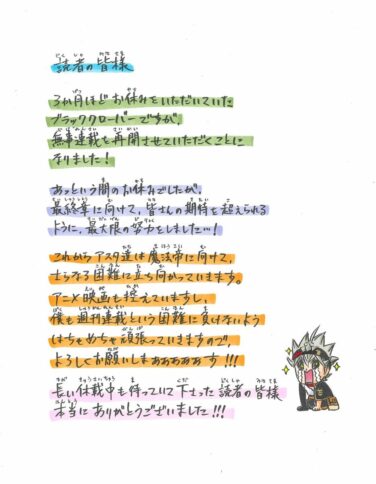 読者の皆様
3か月ほどお休みをいただいていた
ブラッククローバーですが、
無事連載を再開させていただくことに
なりました！
あっという間のお休みでしたが、
最終章に向けて、皆さんの期待を超えられる
ように、最大限の努力をしました…！
これからアスタ達は魔法帝に向けて、
さらなる困難に立ち向かっていきます。
アニメ映画も控えていますし、
僕も週刊連載という困難に負けないよう
はちゃめちゃ頑張っていきますので、
よろしくお願いしまぁぁぁぁぁす!!!
長い休載中も待っていて下さった読者の皆様
本当にありがとうございました!!!